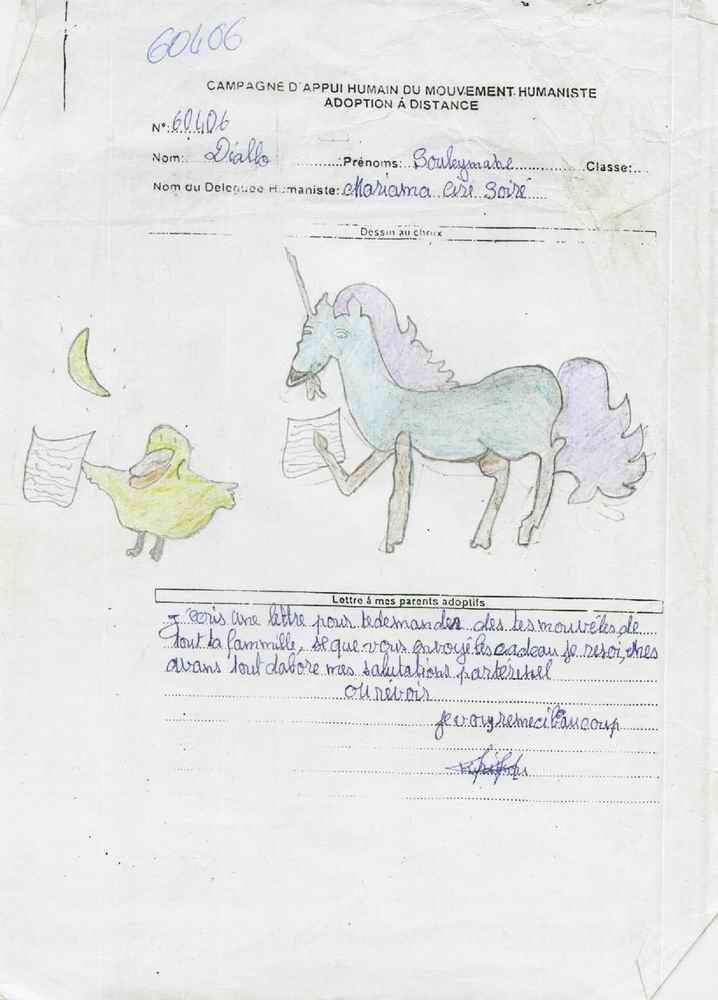 60406
CAMPAGNE D'APPUI HUMAIN DU MOUVEMENT HUMANISTE
ADOPTION À DISTANCE
N°: 60406
Nom: Diallo Prénoms: Souleymane Classe:
Nom du Deleguée Humaniste: Mariama Ciré Soiré
Dessin au choix
Lettre à mes parents adoptifs
J'ecris une lettre pour tedemander des tesmouvéles de
tout ta fammille, se que vous envoyé les cadeau je resoi, mes
avans tout dabore mes salutations
ou révoir
je vous remeci beaucoup